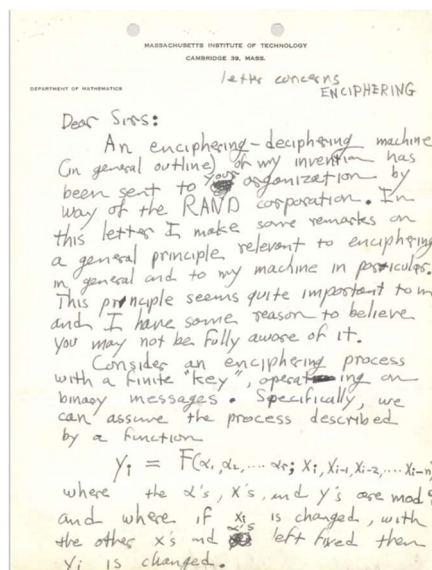 MASSACHUSETTS INSTITUTE OF TECHNOLOGY
CAMBRIDGE 39, MASS.
letter concerns
ENCIPHERING
DEPARTMENT OF MATHEMATICS
Dear Sirs:
An enciphering-deciphering machine
(in general outline) of my invention has
been sent to your organization by
way of the RAND corporation. In
this letter I make some remarks on
a general principle relevant to enciphering
in general and to my machine in particular.
This principle seems quite important to m
and I have some reason to believe
you may not be fully aware of it.
Consider an enciphering process
with a finite "key", operating on
binary messages. Specifically, we
can assume the process described
by a function
yi = F(α1, α2, .... αr; xi, xi-1, xi-2, .... xi-n
where the α's, x's, and y's are mod
and where if xi is changed, with
the other x's and α's left fixed then
yi is changed.